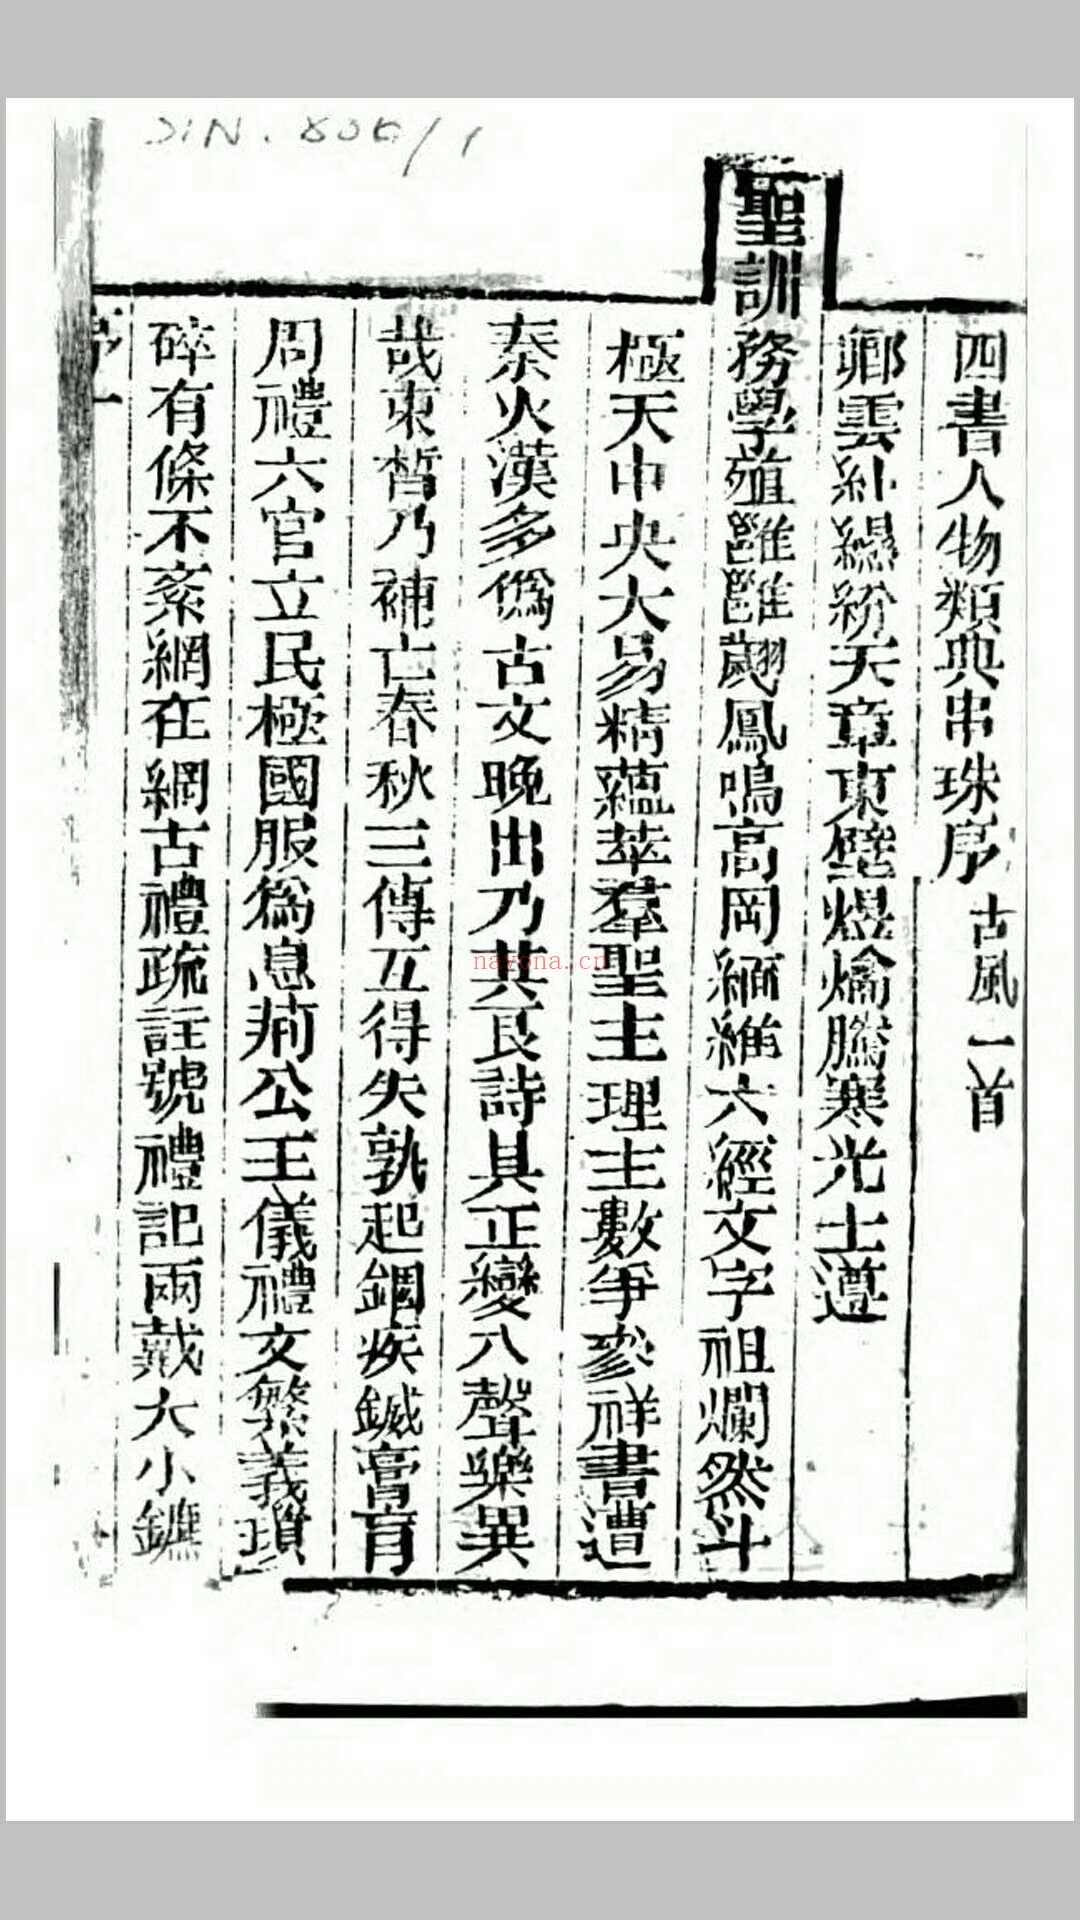 SIN. 806/1
四書人物類典串珠序 古風一首
卿雲糺縵紛天章東壁煜爚騰寒光士遵
聖訓務學殖雝雝翽鳳鳴高岡緬維六經文字祖爛然斗
極天中央大易精蘊萃羣聖主理主數爭參祥書遭
秦火漢多僞古文晚出乃共良詩具正變八聲樂異
哉束晳乃補亡春秋三傳互得失孰起錮疾鍼膏肓
周禮六官立民極國服爲息荊公王儀禮文繁義瑣
碎有條不紊網在網古禮疏註號禮記兩戴大小鑣
序 一
nayona.cn